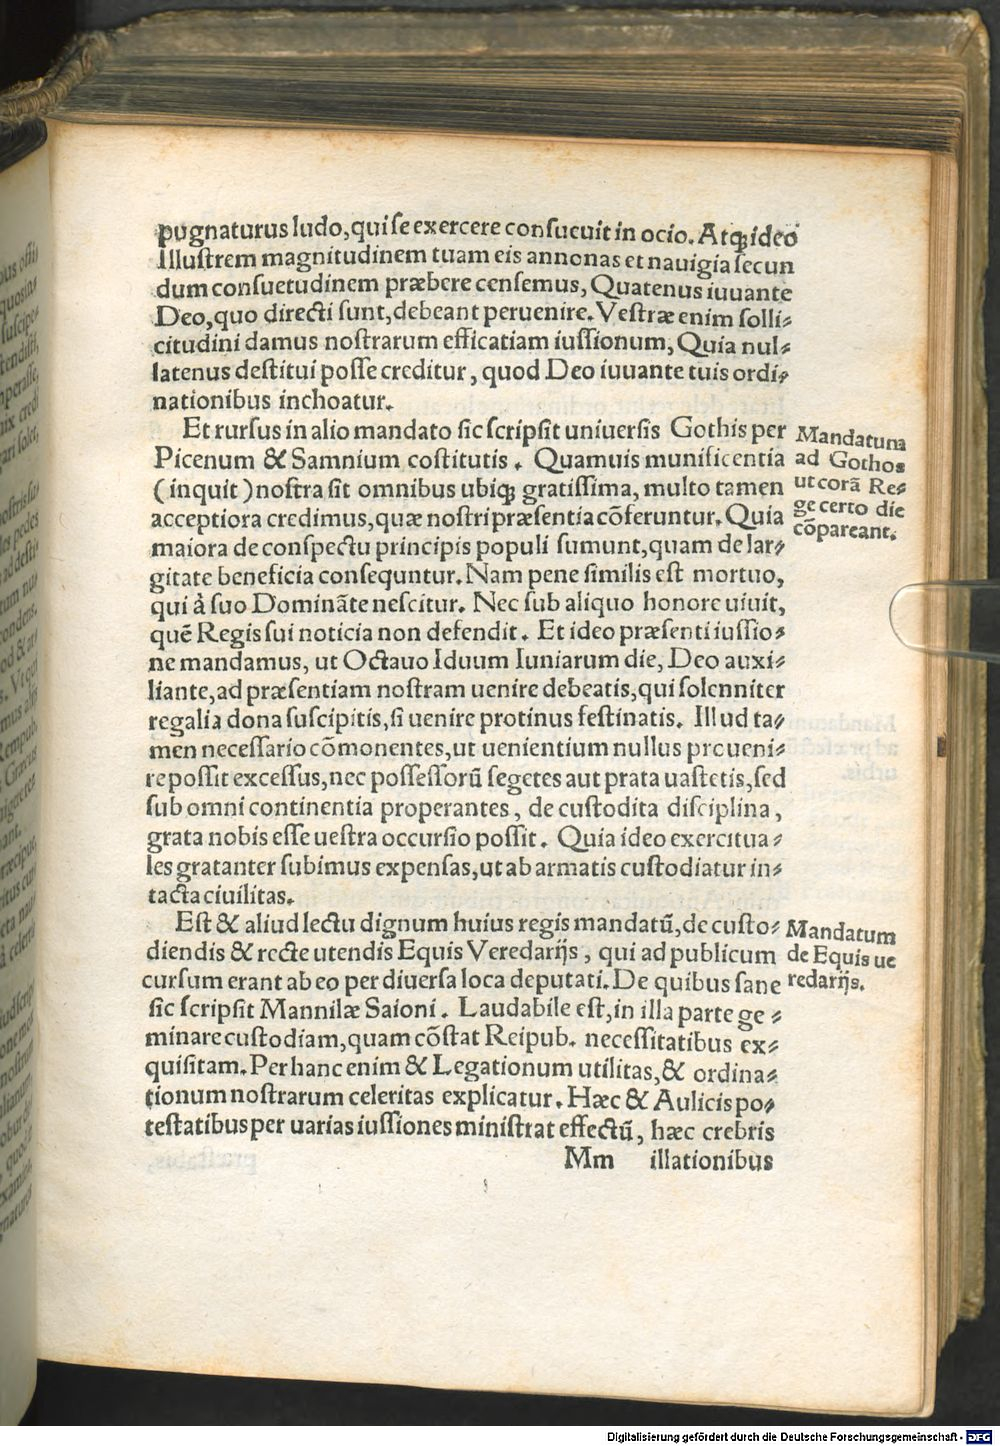 pugnaturus ludo, qui se exercere consueuit in ocio. Atq; ideo
Illustrem magnitudinem tuam eis annonas et nauigia secun
dum consuetudinem præbere censemus, Quatenus iuuante
Deo, quo directi sunt, debeant peruenire. Vestræ enim solli⸗
citudini damus nostrarum efficatiam iussionum, Quia nul⸗
latenus destitui posse creditur, quod Deo iuuante tuis ordi⸗
nationibus inchoatur.
Et rursus in alio mandato sic scripsit uniuersis Gothis per
Picenum & Samnium costitutis. Quamuis munificentia
(inquit) nostra sit omnibus ubiq; gratissima, multo tamen
acceptiora credimus, quæ nostri præsentia cõferuntur. Quia
maiora de conspectu principis populi sumunt, quam de lar⸗
gitate beneficia consequntur. Nam pene similis est mortuo,
qui à suo Dominãte nescitur. Nec sub aliquo honore uiuit,
quẽ Regis sui noticia non defendit. Et ideo præsenti iussio⸗
ne mandamus, ut Octauo Iduum Iuniarum die, Deo auxi⸗
liante, ad præsentiam nostram uenire debeatis, qui solenniter
regalia dona suscipitis, si uenire protinus festinatis. Illud ta⸗
men necessario cõmonentes, ut uenientium nullus proueni⸗
re possit excessus, nec possessorũ segetes aut prata uastetis, sed
sub omni continentia properantes, de custodita disciplina,
grata nobis esse uestra occursio possit. Quia ideo exercitua⸗
les gratanter subimus expensas, ut ab armatis custodiatur in⸗
tacta ciuilitas.
Mandatum
ad Gothos
ut corã Re⸗
ge certo die
cõpareant.
Est & aliud lectu dignum huius regis mandatũ, de custo⸗
diendis & recte utendis Equis Veredarijs, qui ad publicum
cursum erant ab eo per diuersa loca deputati. De quibus sane
sic scripsit Mannilæ Saioni. Laudabile est, in illa parte ge⸗
minare custodiam, quam cõstat Reipub. necessitatibus ex⸗
quisitam. Per hanc enim & Legationum utilitas, & ordina⸗
tionum nostrarum celeritas explicatur. Hæc & Aulicis po⸗
testatibus per uarias iussiones ministrat effectũ, hæc crebris
Mandatum
de Equis ue
redarijs.
Mm illationibus
Digitalisierung gefördert durch die Deutsche Forschungsgemeinschaft - DFG